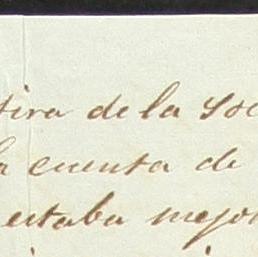 tira de la Soc
la cuenta de
estaba mejor